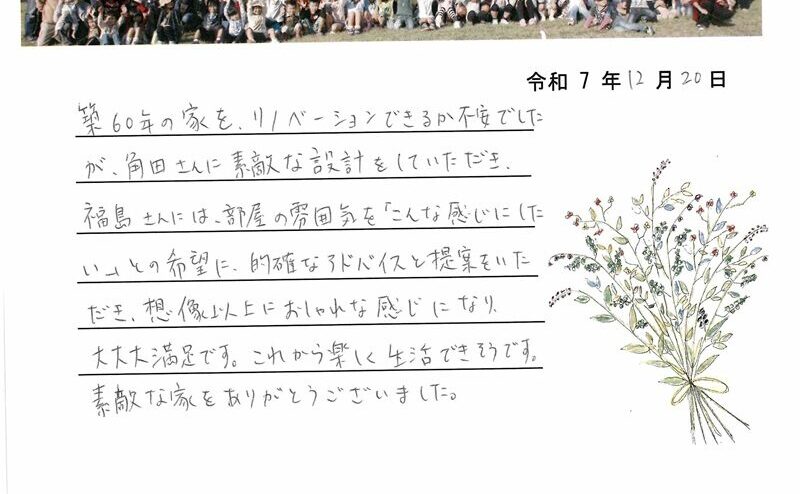 令和 7 年 12 月 20 日
築60年の家を、リノベーションできるか不安でした
が、角田さんに素敵な設計をしていただき、
福島さんには、部屋の雰囲気を「こんな感じにした
い」との希望に、的確なアドバイスと提案をいた
だき、想像以上におしゃれな感じになり、
大大大満足です。これから楽しく生活できそうです。
素敵な家をありがとうございました。